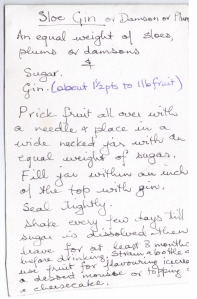 Sloe Gin or Damson or Plum
An equal weight of sloes,
plums or damsons
&
Sugar.
Gin. (about 1½pts to 1lb fruit)
Prick fruit all over with
a needle & place in a
wide necked jar with an
equal weight of sugar.
Fill jar within an inch
of the top with gin.
Seal tightly.
Shake every few days till
sugar is dissolved then
leave for at least 3 months
before drinking. Strain & bottle &
use fruit for flavouring icecream
a desert mousse or topping
a cheesecake.